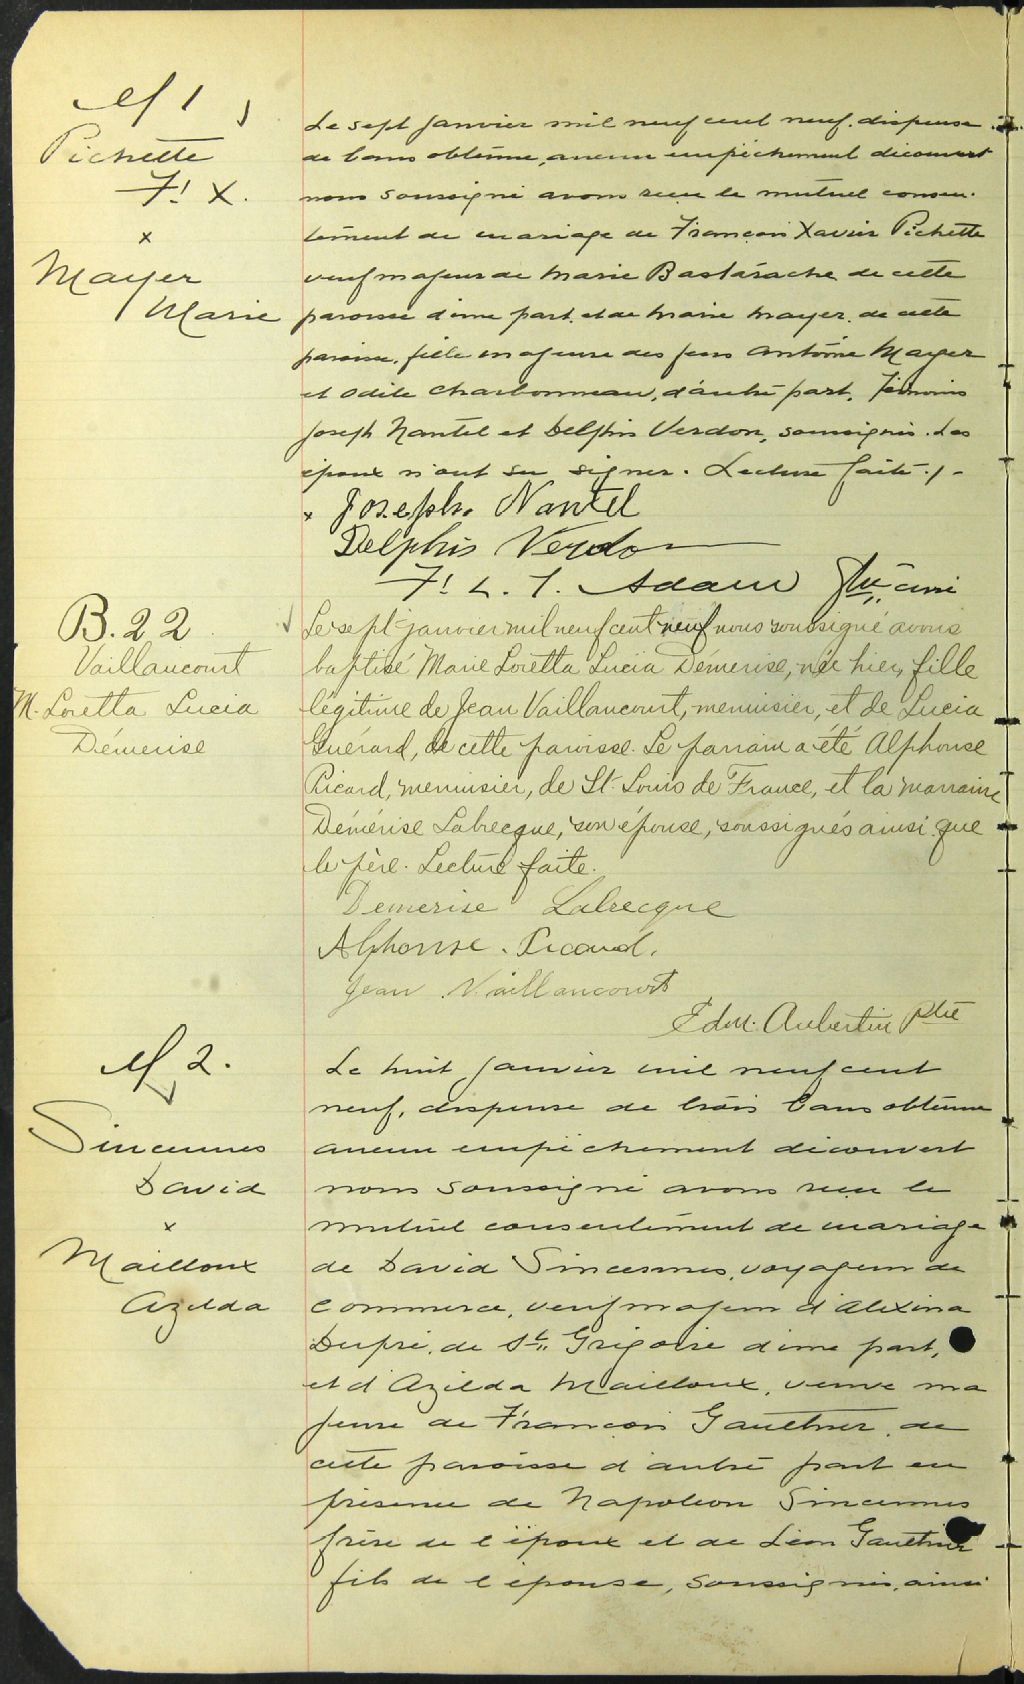 M 1
Pichette
F. X.
x
Mayer
Marie
Le sept janvier mil neuf cent neuf, dispense
de bans obtenue, aucun empêchement découvert
nous soussigné avons reçu le mutuel consen-
tement de mariage de François Xavier Pichette
veuf majeur de Marie Bastarache de cette
paroisse d'une part, et de Marie Mayer, de cette
paroisse, fille majeure des feus Antoine Mayer
et Odile Charbonneau, d'autre part. Témoins
Joseph Nantel et Delphis Verdon, soussignés. Les
époux n'ont su signer. Lecture faite./-
x Joseph Nantel
Delphis Verdon
F. L. T. Adam Ptre curé
B. 22
Vaillancourt
M. Loretta Lucia
Démerise
Le sept janvier mil neuf cent neuf nous soussigné avons
baptisé Marie Loretta Lucia Démerise, née hier, fille
légitime de Jean Vaillancourt, menuisier, et de Lucia
Guérard, de cette paroisse. Le parrain a été Alphonse
Picard, menuisier, de St. Louis de France, et la marraine
Démérise Labrecque, son épouse, soussignés ainsi que
le père. Lecture faite.
Demerise Labrecque
Alphonse. Picard.
Jean Vaillancourt
Edm. Aubertin Ptre
M 2.
Sincennes
David
x
Mailloux
Azilda
Le huit janvier mil neuf cent
neuf, dispense de trois bans obtenue
aucun empêchement découvert
nous soussigné avons reçu le
mutuel consentement de mariage
de David Sincennes, voyageur de
commerce, veuf majeur d'Alexina
Dupré, de St. Grégoire d'une part,
et d'Azilda Mailloux, veuve ma
jeure de François Gauthier, de
cette paroisse d'autre part en
présence de Napoléon Sincennes
frère de l'époux et de Léon Gauthier
fils de l'épouse, soussignés, ainsi